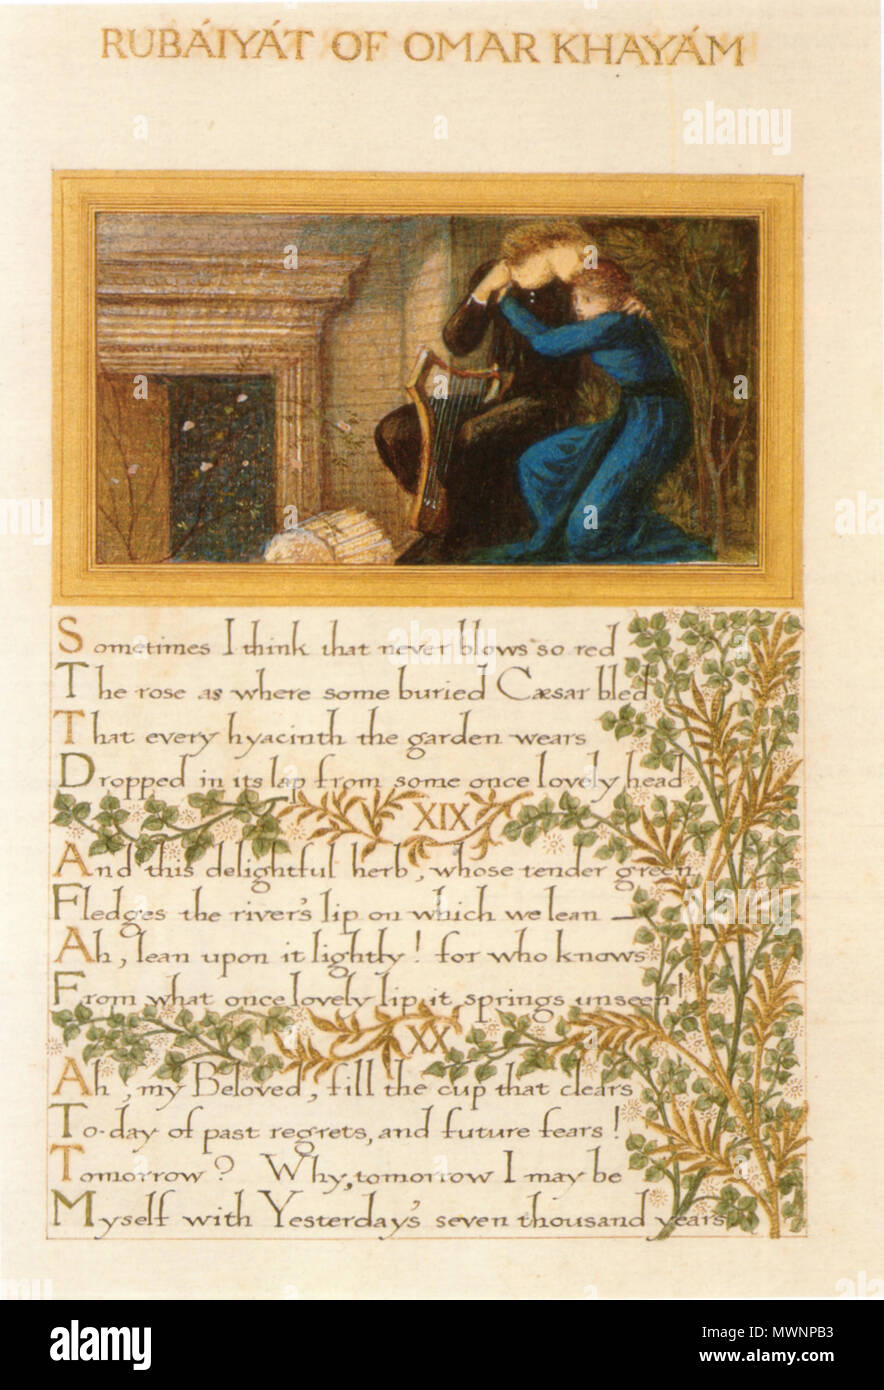 RUBÁIYÁT OF OMAR KHAYÁM
Sometimes I think that never blows so red
The rose as where some buried Cæsar bled
That every hyacinth the garden wears
Dropped in its lap from some once lovely head
XIX
And this delightful herb, whose tender green
Fledges the river's lip on which we lean —
Ah, lean upon it lightly! for who knows
From what once lovely lip it springs unseen!
XX
Ah, my Beloved, fill the cup that clears
To-day of past regrets, and future fears!
Tomorrow? Why, tomorrow I may be
Myself with Yesterday's seven thousand years
alamy
Image ID: MWNPB3
www.alamy.com